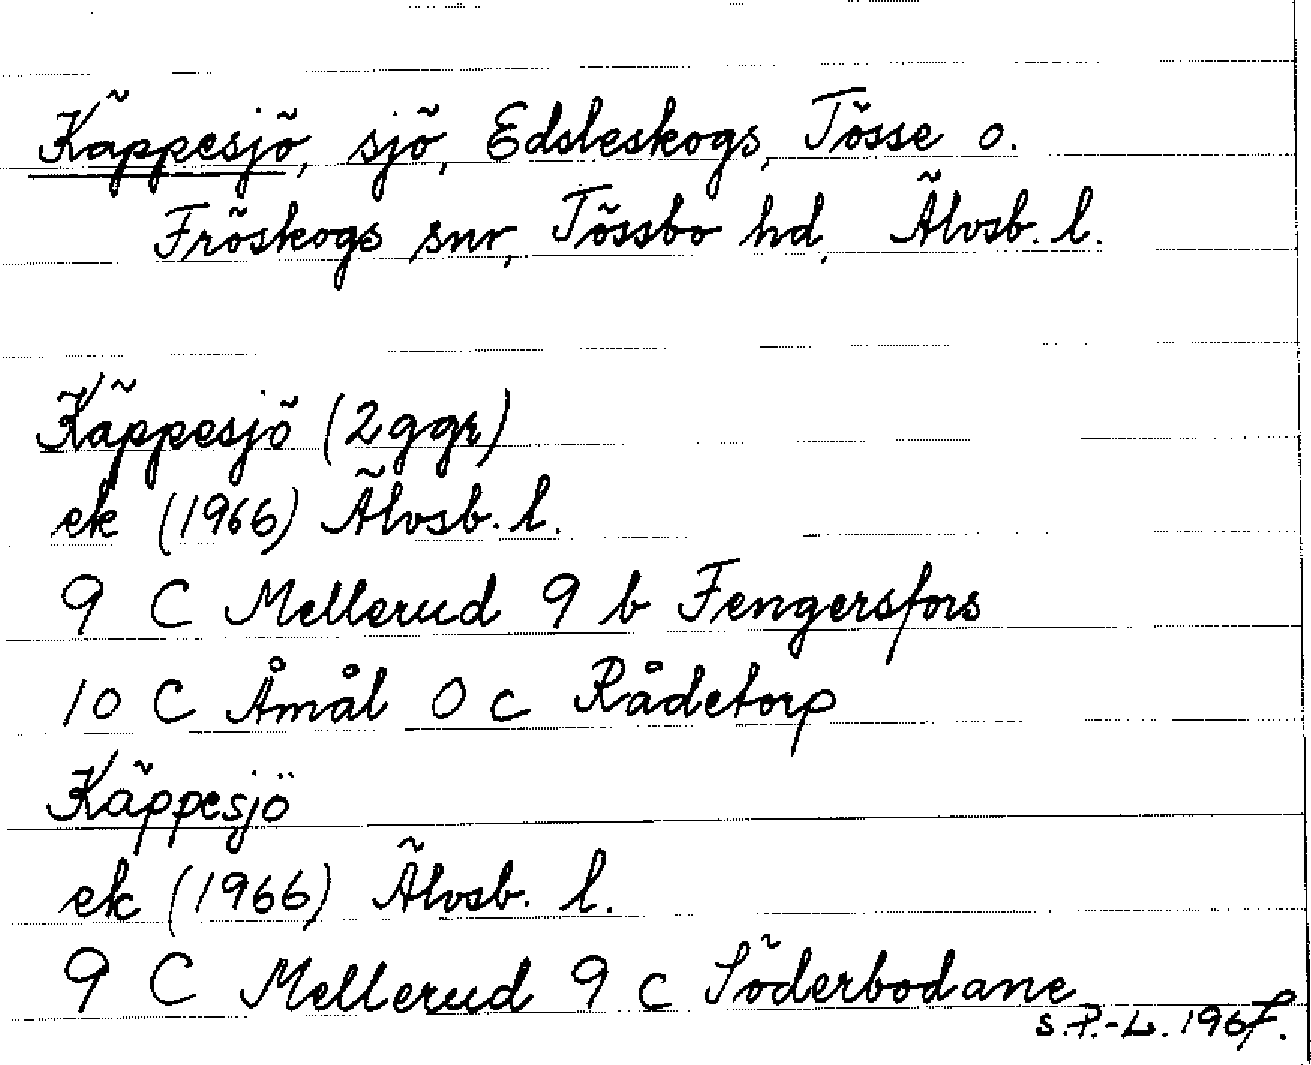 Käppesjö, sjö, Edsleskogs, Tösse o.
Fröskogs snr, Tössbo hd, Älvsb. l.
Käppesjö (2 ggr)
ek (1966) Älvsb. l.
9 C Mellerud 9 b Fengersfors
10 C Åmål 0 c Rådetorp
Käppesjö
ek (1966) Älvsb. l.
9 C Mellerud 9 c Söderbodane
S.P.-L. 1967.